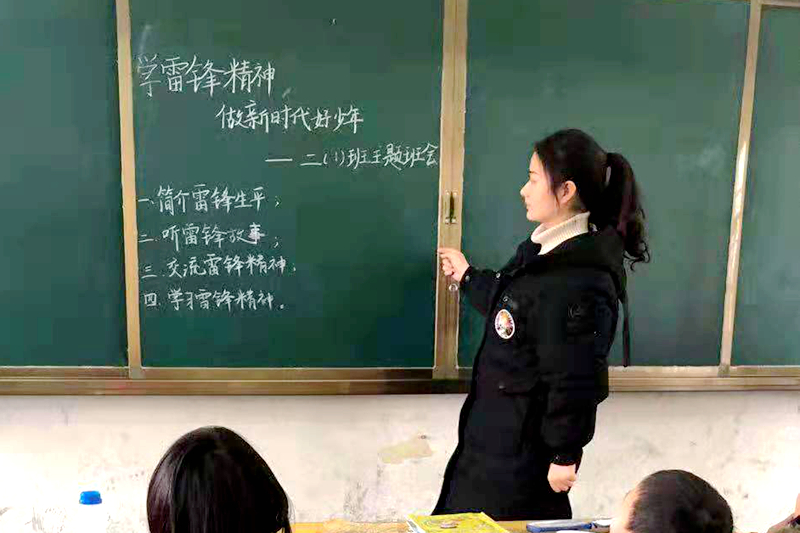 学雷锋精神
做新时代好少年
— 二(1)班主题班会
一.简介雷锋生平;
二.听雷锋故事;
三.交流雷锋精神;
四.学习雷锋精神。